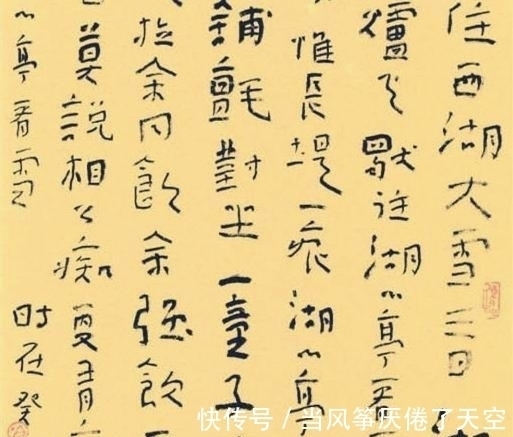 住西湖大雪三日
爐火獨往湖心亭看
惟長堤一痕湖心亭
鋪氈對坐一童子
拉余同飲余强飲
曰莫說相公痴更有
心亭看雪 時在癸
快传号 / 当风筝厌倦了天空